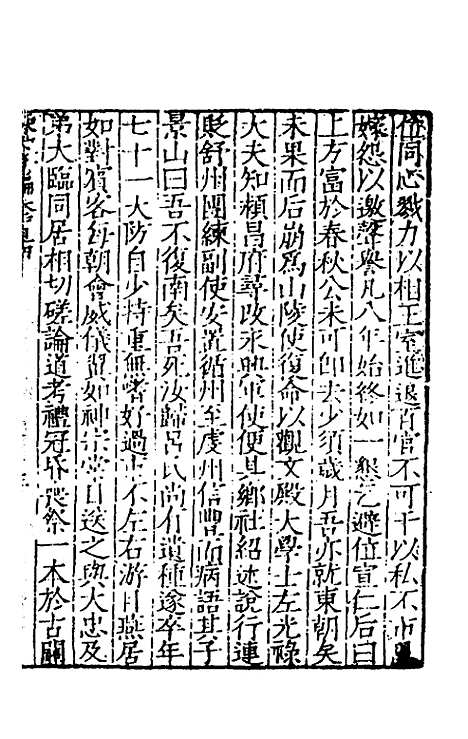 位同心戮力以相王室進退百官不可干以私不市恩
嫁怨以邀聲譽凡八年始終如一懇乞避位宣仁后曰
上方富於春秋公未可即去少須歲月吾亦就東朝矣
未果而后崩爲山陵使復命以觀文殿大學士左光祿
大夫知潁昌府尋改永興軍使便其鄉社紹述說行連
貶舒州團練副使安置循州至虔州信豐而病語其子
景山曰吾不復南矣吾死汝歸呂氏尚有遺種遂卒年
七十一大防自少持重無嗜好過市不左右游目燕居
如對賓客每朝會威儀翼如神宗常目送之與大忠及
弟大臨同居相切磋論道考禮冠昏喪祭一本於古關